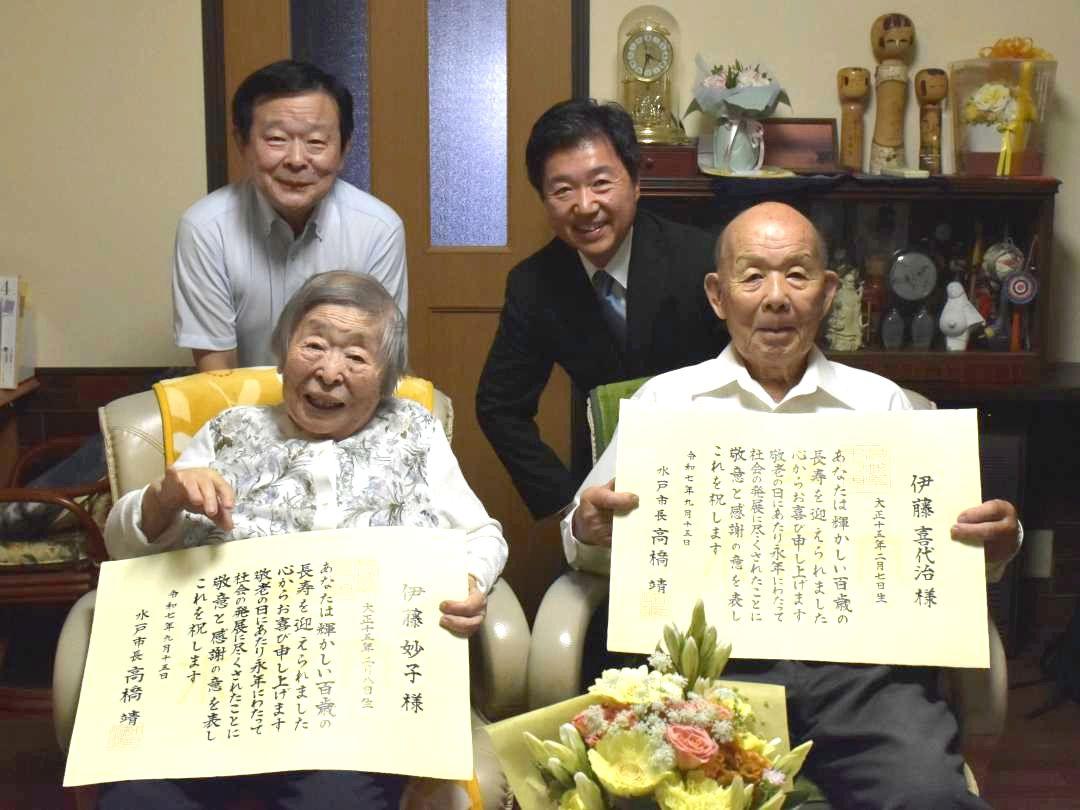 伊藤妙子様
あなたは輝かしい百歳の
長寿を迎えられました
心からお喜び申し上げます
敬老の日にあたり永年にわたって
社会の発展に尽くされたことに
敬意と感謝の意を表し
これを祝します
令和七年九月十五日
水戸市長 高橋 靖
伊藤喜代治様
大正十五年二月七日生
あなたは輝かしい百歳の
長寿を迎えられました
心からお喜び申し上げます
敬老の日にあたり永年にわたって
社会の発展に尽くされたことに
敬意と感謝の意を表し
これを祝します
令和七年九月十五日
水戸市長 高橋 靖
4